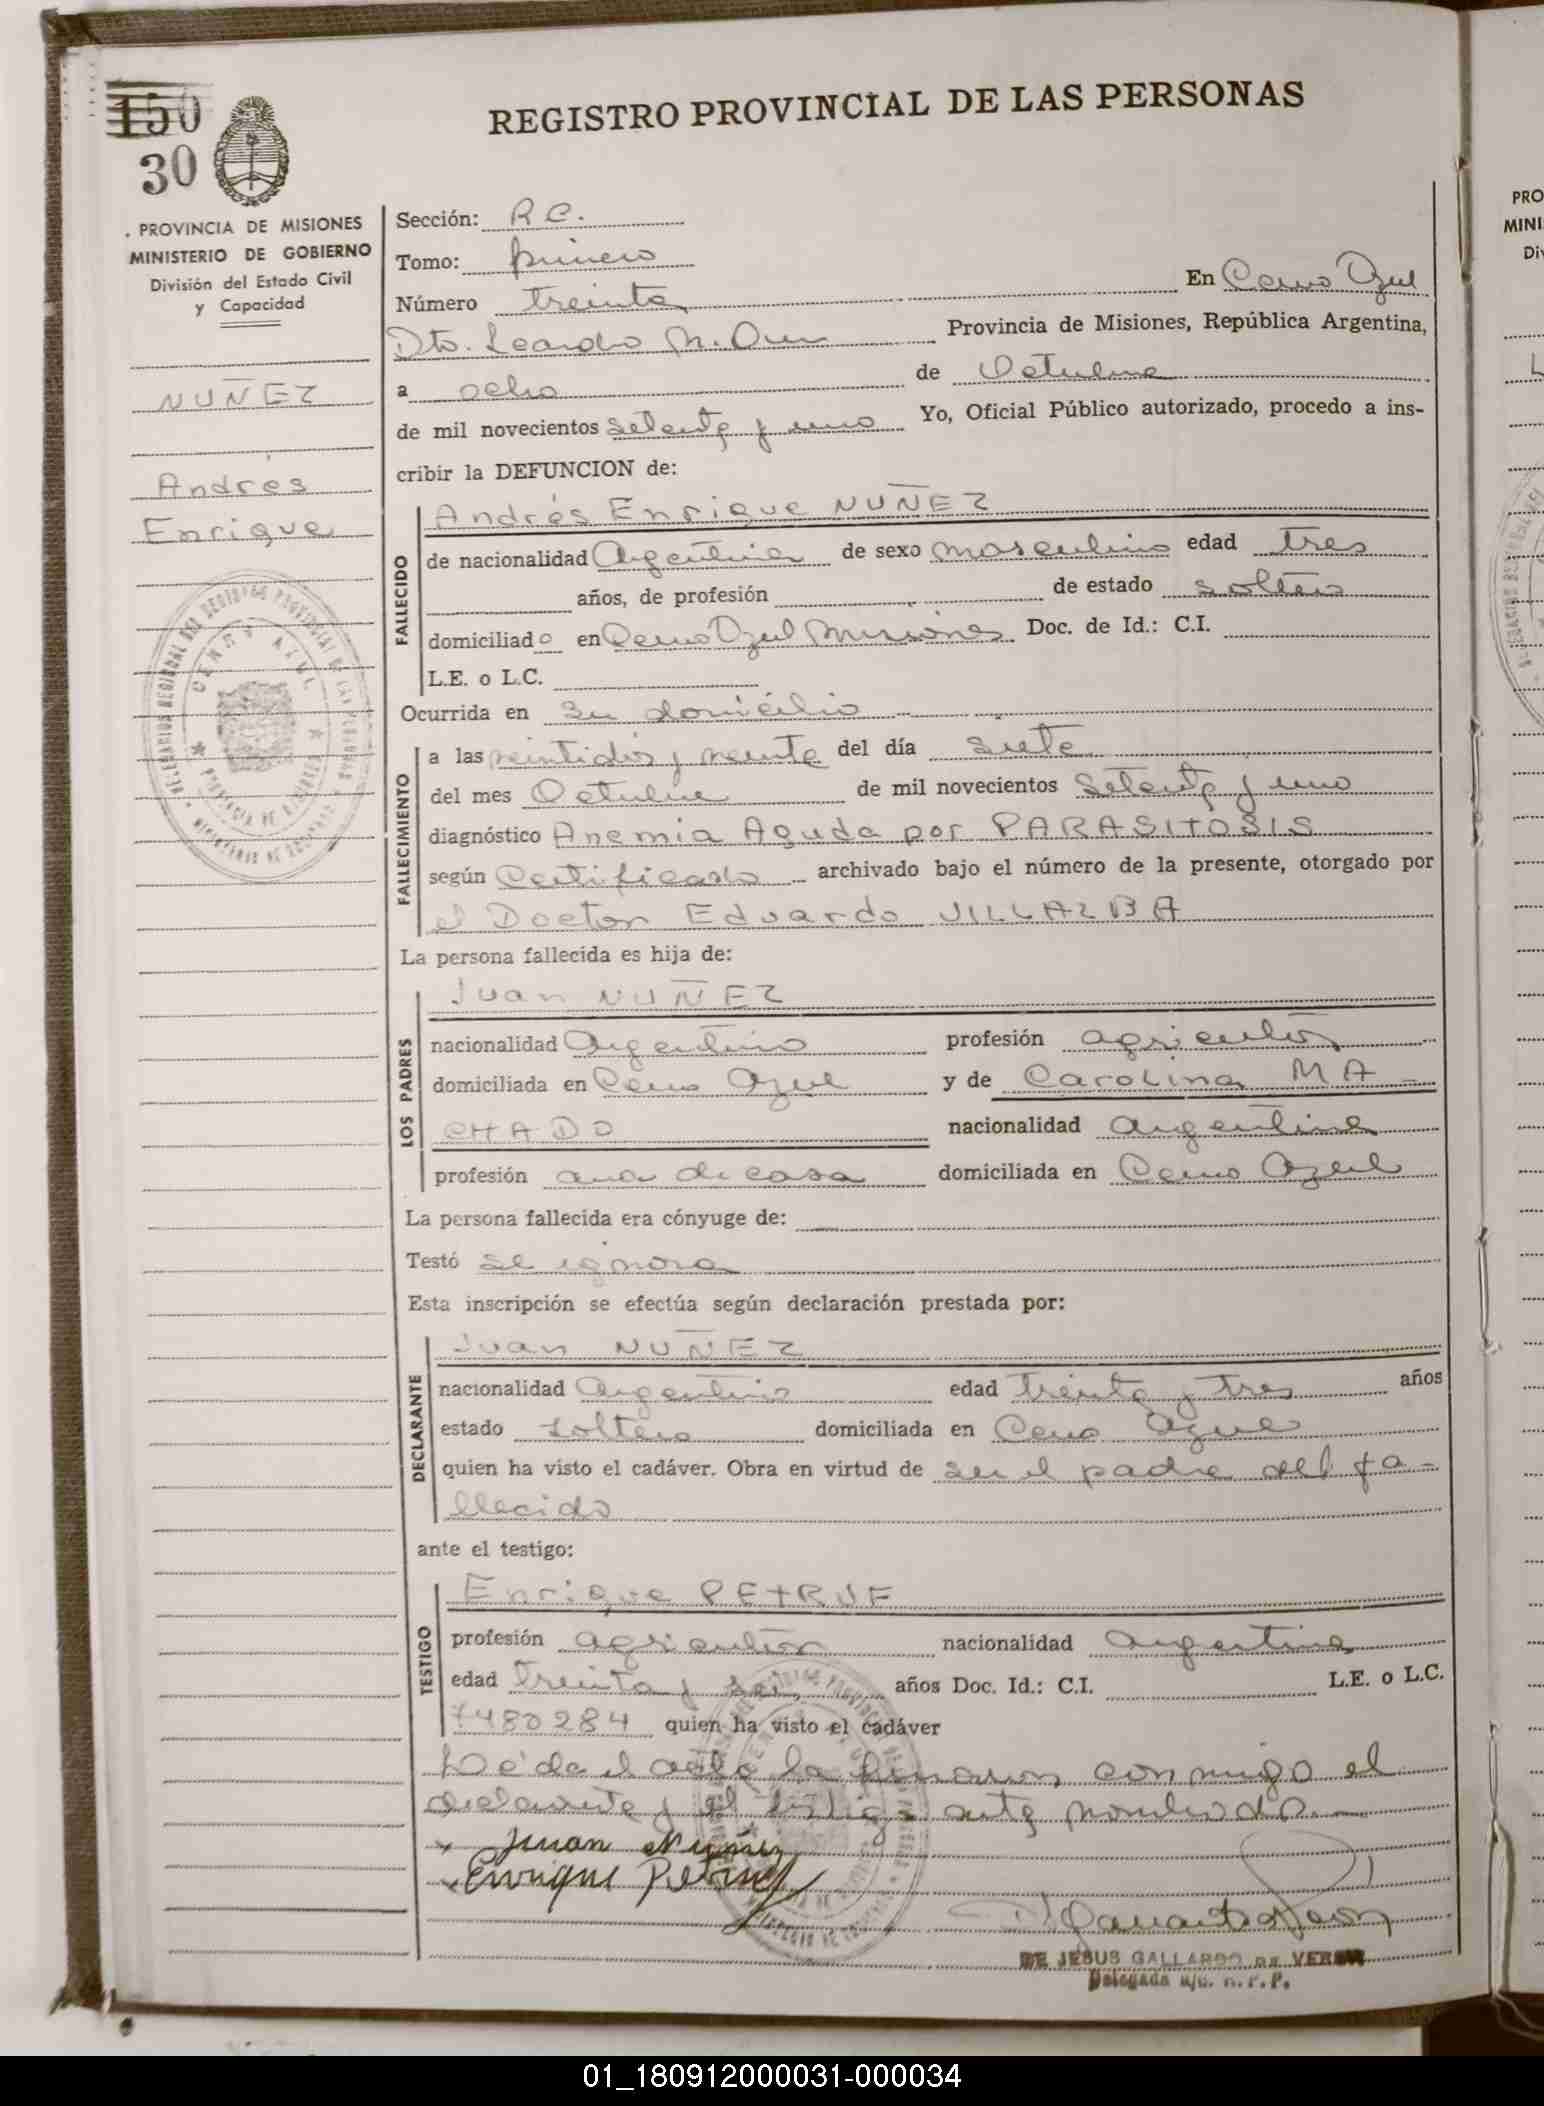 150
30
REGISTRO PROVINCIAL DE LAS PERSONAS
PROVINCIA DE MISIONES
MINISTERIO DE GOBIERNO
División del Estado Civil
y Capacidad
NUÑEZ
Andrés
Enrique
Sección: R C.
Tomo: primero
Número treinta En Cerro Azul
Dto. Leandro N. Alem Provincia de Misiones, República Argentina,
a ocho de Octubre
de mil novecientos setenta y uno Yo, Oficial Público autorizado, procedo a ins-
cribir la DEFUNCION de:
Andrés Enrique NUÑEZ
FALLECIDO
de nacionalidad Argentina de sexo masculino edad tres
años, de profesión de estado soltero
domiciliado en Cerro Azul Misiones Doc. de Id.: C.I.
L.E. o L.C.
Ocurrida en su domicilio
FALLECIMIENTO
a las veintidós y veinte del día siete
del mes Octubre de mil novecientos setenta y uno
diagnóstico Anemia Aguda por PARASITOSIS
según Certificado archivado bajo el número de la presente, otorgado por
el Doctor Eduardo VILLALBA
La persona fallecida es hija de:
LOS PADRES
Juan NUÑEZ
nacionalidad Argentino profesión agricultor
domiciliada en Cerro Azul y de Carolina MA-
CHADO nacionalidad argentina
profesión ama de casa domiciliada en Cerro Azul
La persona fallecida era cónyuge de:
Testó se ignora
Esta inscripción se efectúa según declaración prestada por:
DECLARANTE
Juan NUÑEZ
nacionalidad Argentino edad treinta y tres años
estado soltero domiciliada en Cerro Azul
quien ha visto el cadáver. Obra en virtud de ser el padre del fa-
llecido
ante el testigo:
TESTIGO
Enrique PETRUF
profesión agricultor nacionalidad argentina
edad treinta y seis años Doc. Id.: C.I. L.E. o L.C.
7480284 quien ha visto el cadáver
Leída el acta la firmaron conmigo el
declarante y el testigo ante nombrado.
Juan Nuñez
Enrique Petruf
DE JESUS GALLARDO DE
Delegada
01_180912000031-000034